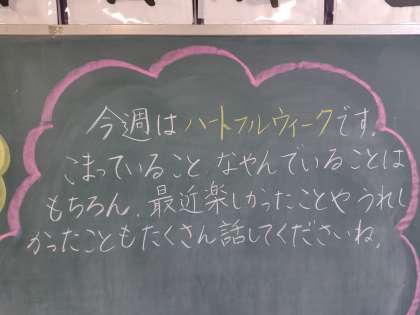 今週はハートフルウィークです。
こまっていること、なやんでいることは
もちろん、最近楽しかったことやうれし
かったこともたくさん話してくださいね。